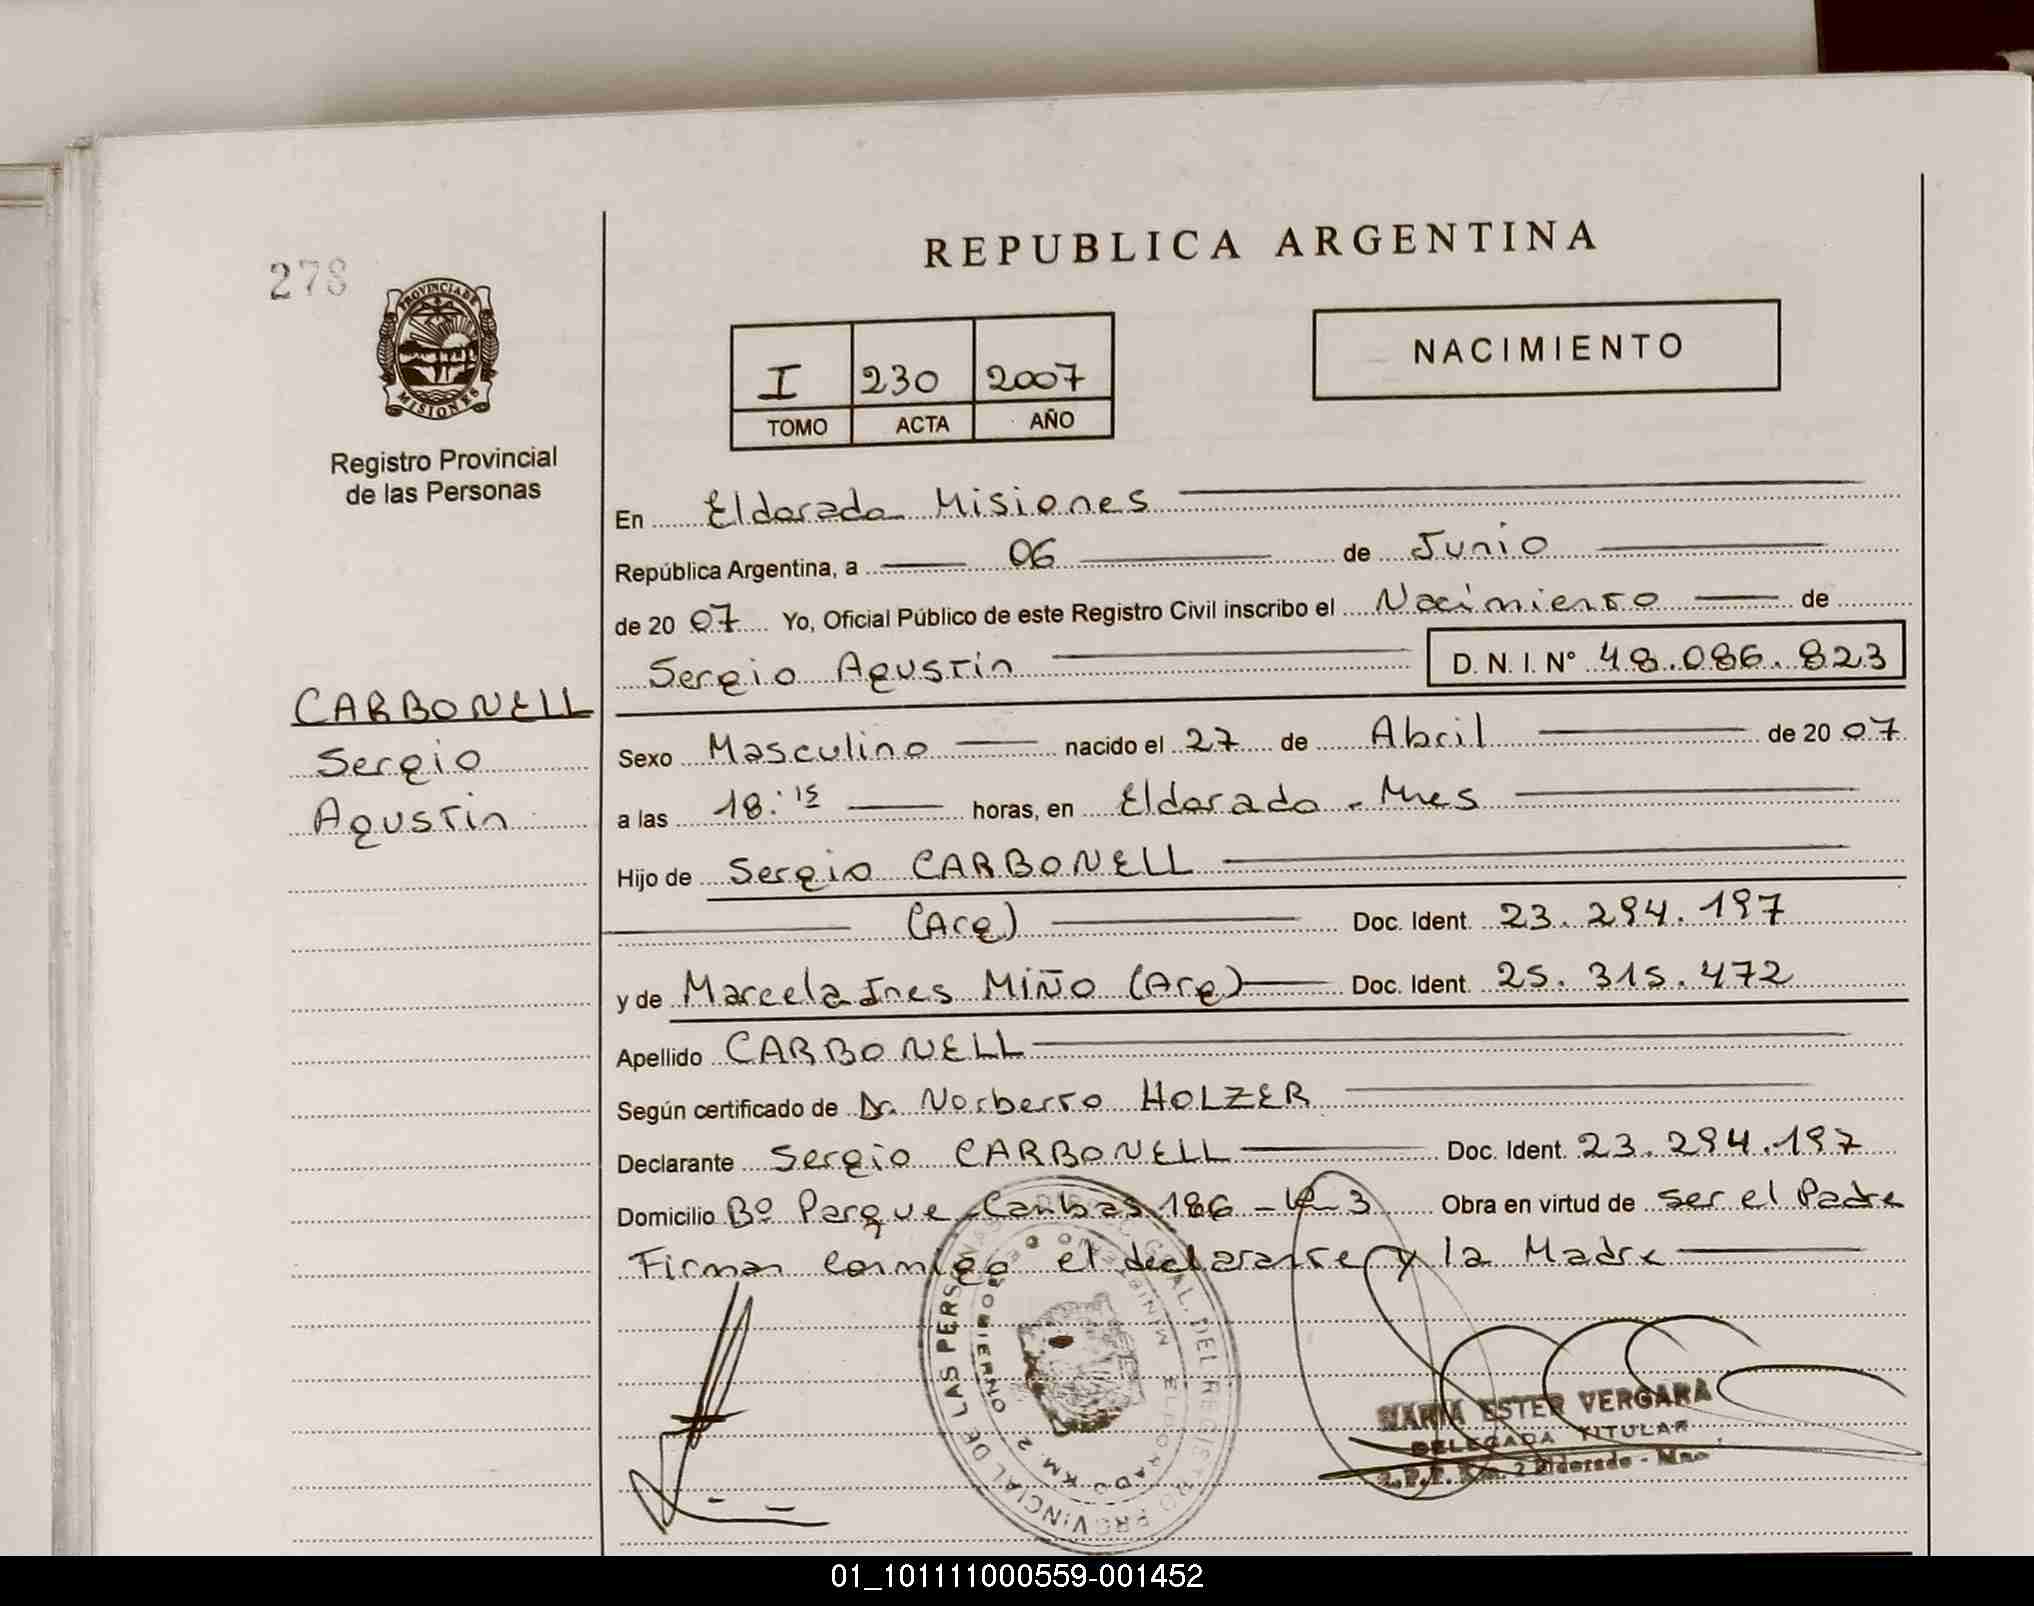 278
PROVINCIA DE
MISIONES
Registro Provincial
de las Personas
CARBONELL
Sergio
Agustin
REPUBLICA ARGENTINA
I 230 2007
TOMO ACTA AÑO
NACIMIENTO
En Eldorado Misiones
República Argentina, a 06 de Junio
de 2007 Yo, Oficial Público de este Registro Civil inscribo el Nacimiento de
Sergio Agustin D. N. I. Nº 48.086.823
Sexo Masculino nacido el 27 de Abril de 2007
a las 18:15 horas, en Eldorado - Mnes
Hijo de Sergio CARBONELL
(Arg) Doc. Ident. 23.294.197
y de Marcela Ines MIÑO (Arg) Doc. Ident. 25.315.472
Apellido CARBONELL
Según certificado de Dr. Norberto HOLZER
Declarante Sergio CARBONELL Doc. Ident. 23.294.197
Domicilio Bº Parque 186 - 3 Obra en virtud de ser el Padre
Firman conmigo el declarante y la Madre
GRAL. DEL REGISTRO PROVINCIAL DE LAS PERSONAS
MINISTERIO DE GOBIERNO
ELDORADO KM. 2
MARIA ESTER VERGARA
DELEGADA TITULAR
R.P.P. Km. 2 Eldorado - Mnes
01_101111000559-001452